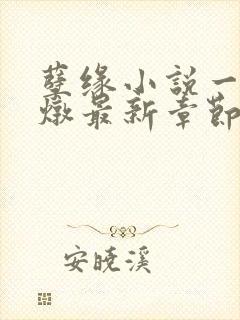 孽缘小説一
燉最新章節
安曉溪